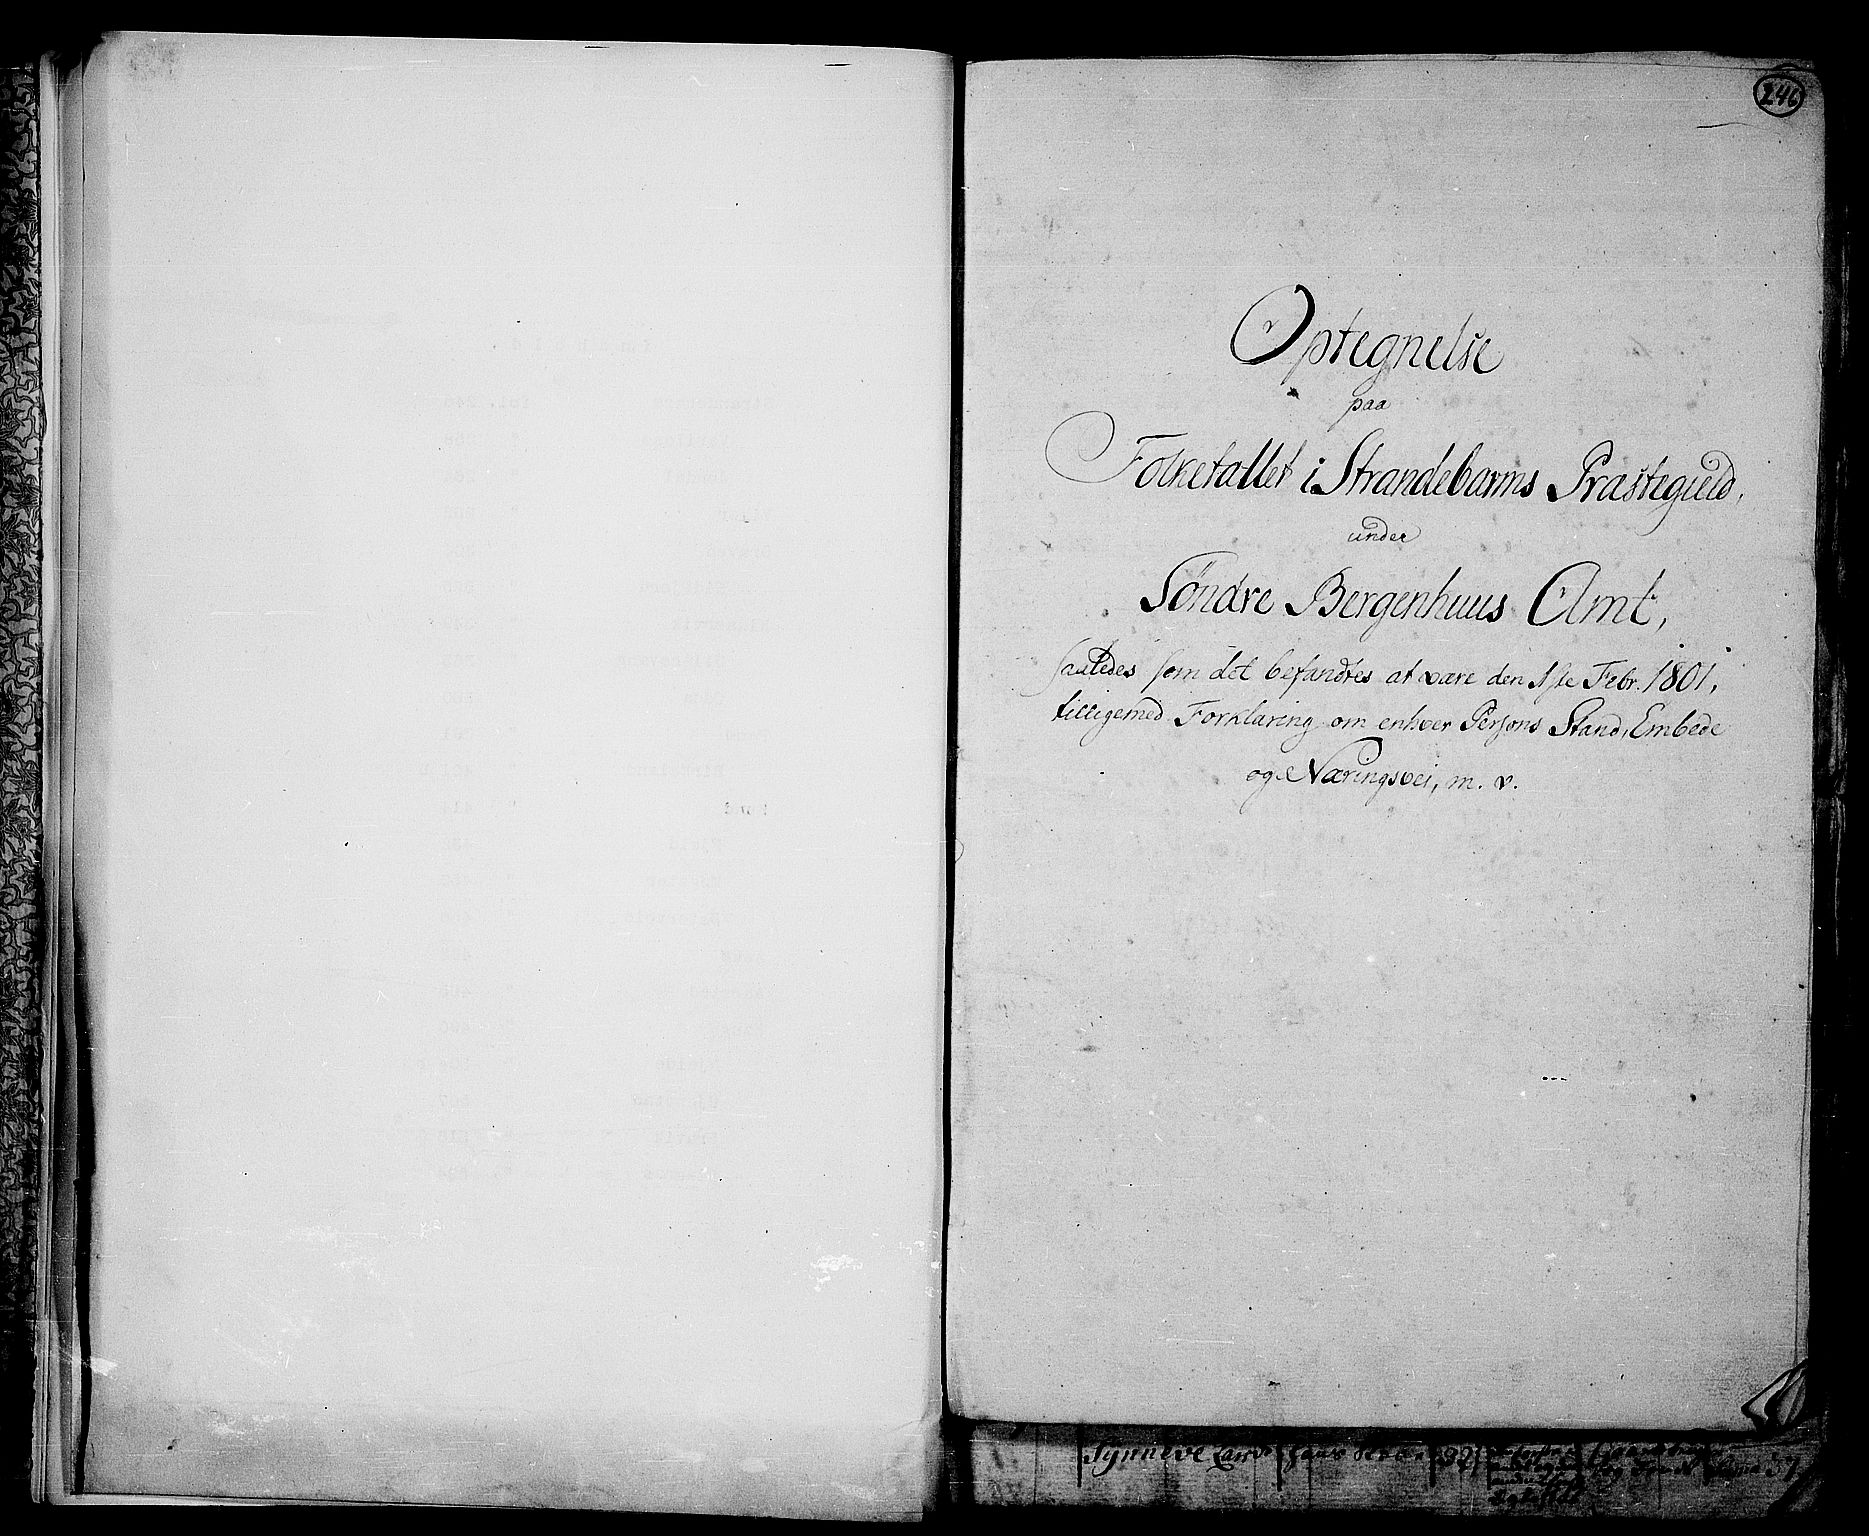 246
Optegnelse
paa
Folketallet i Strandebarms Præstegield,
under
Söndre Bergenhuus Amt,
saaledes som det befandtes at være den 1ste Febr. 1801,
tilligemed Forklaring om enhver Persons Stand, Embede
og Næringsvei, m. v.
Synneve